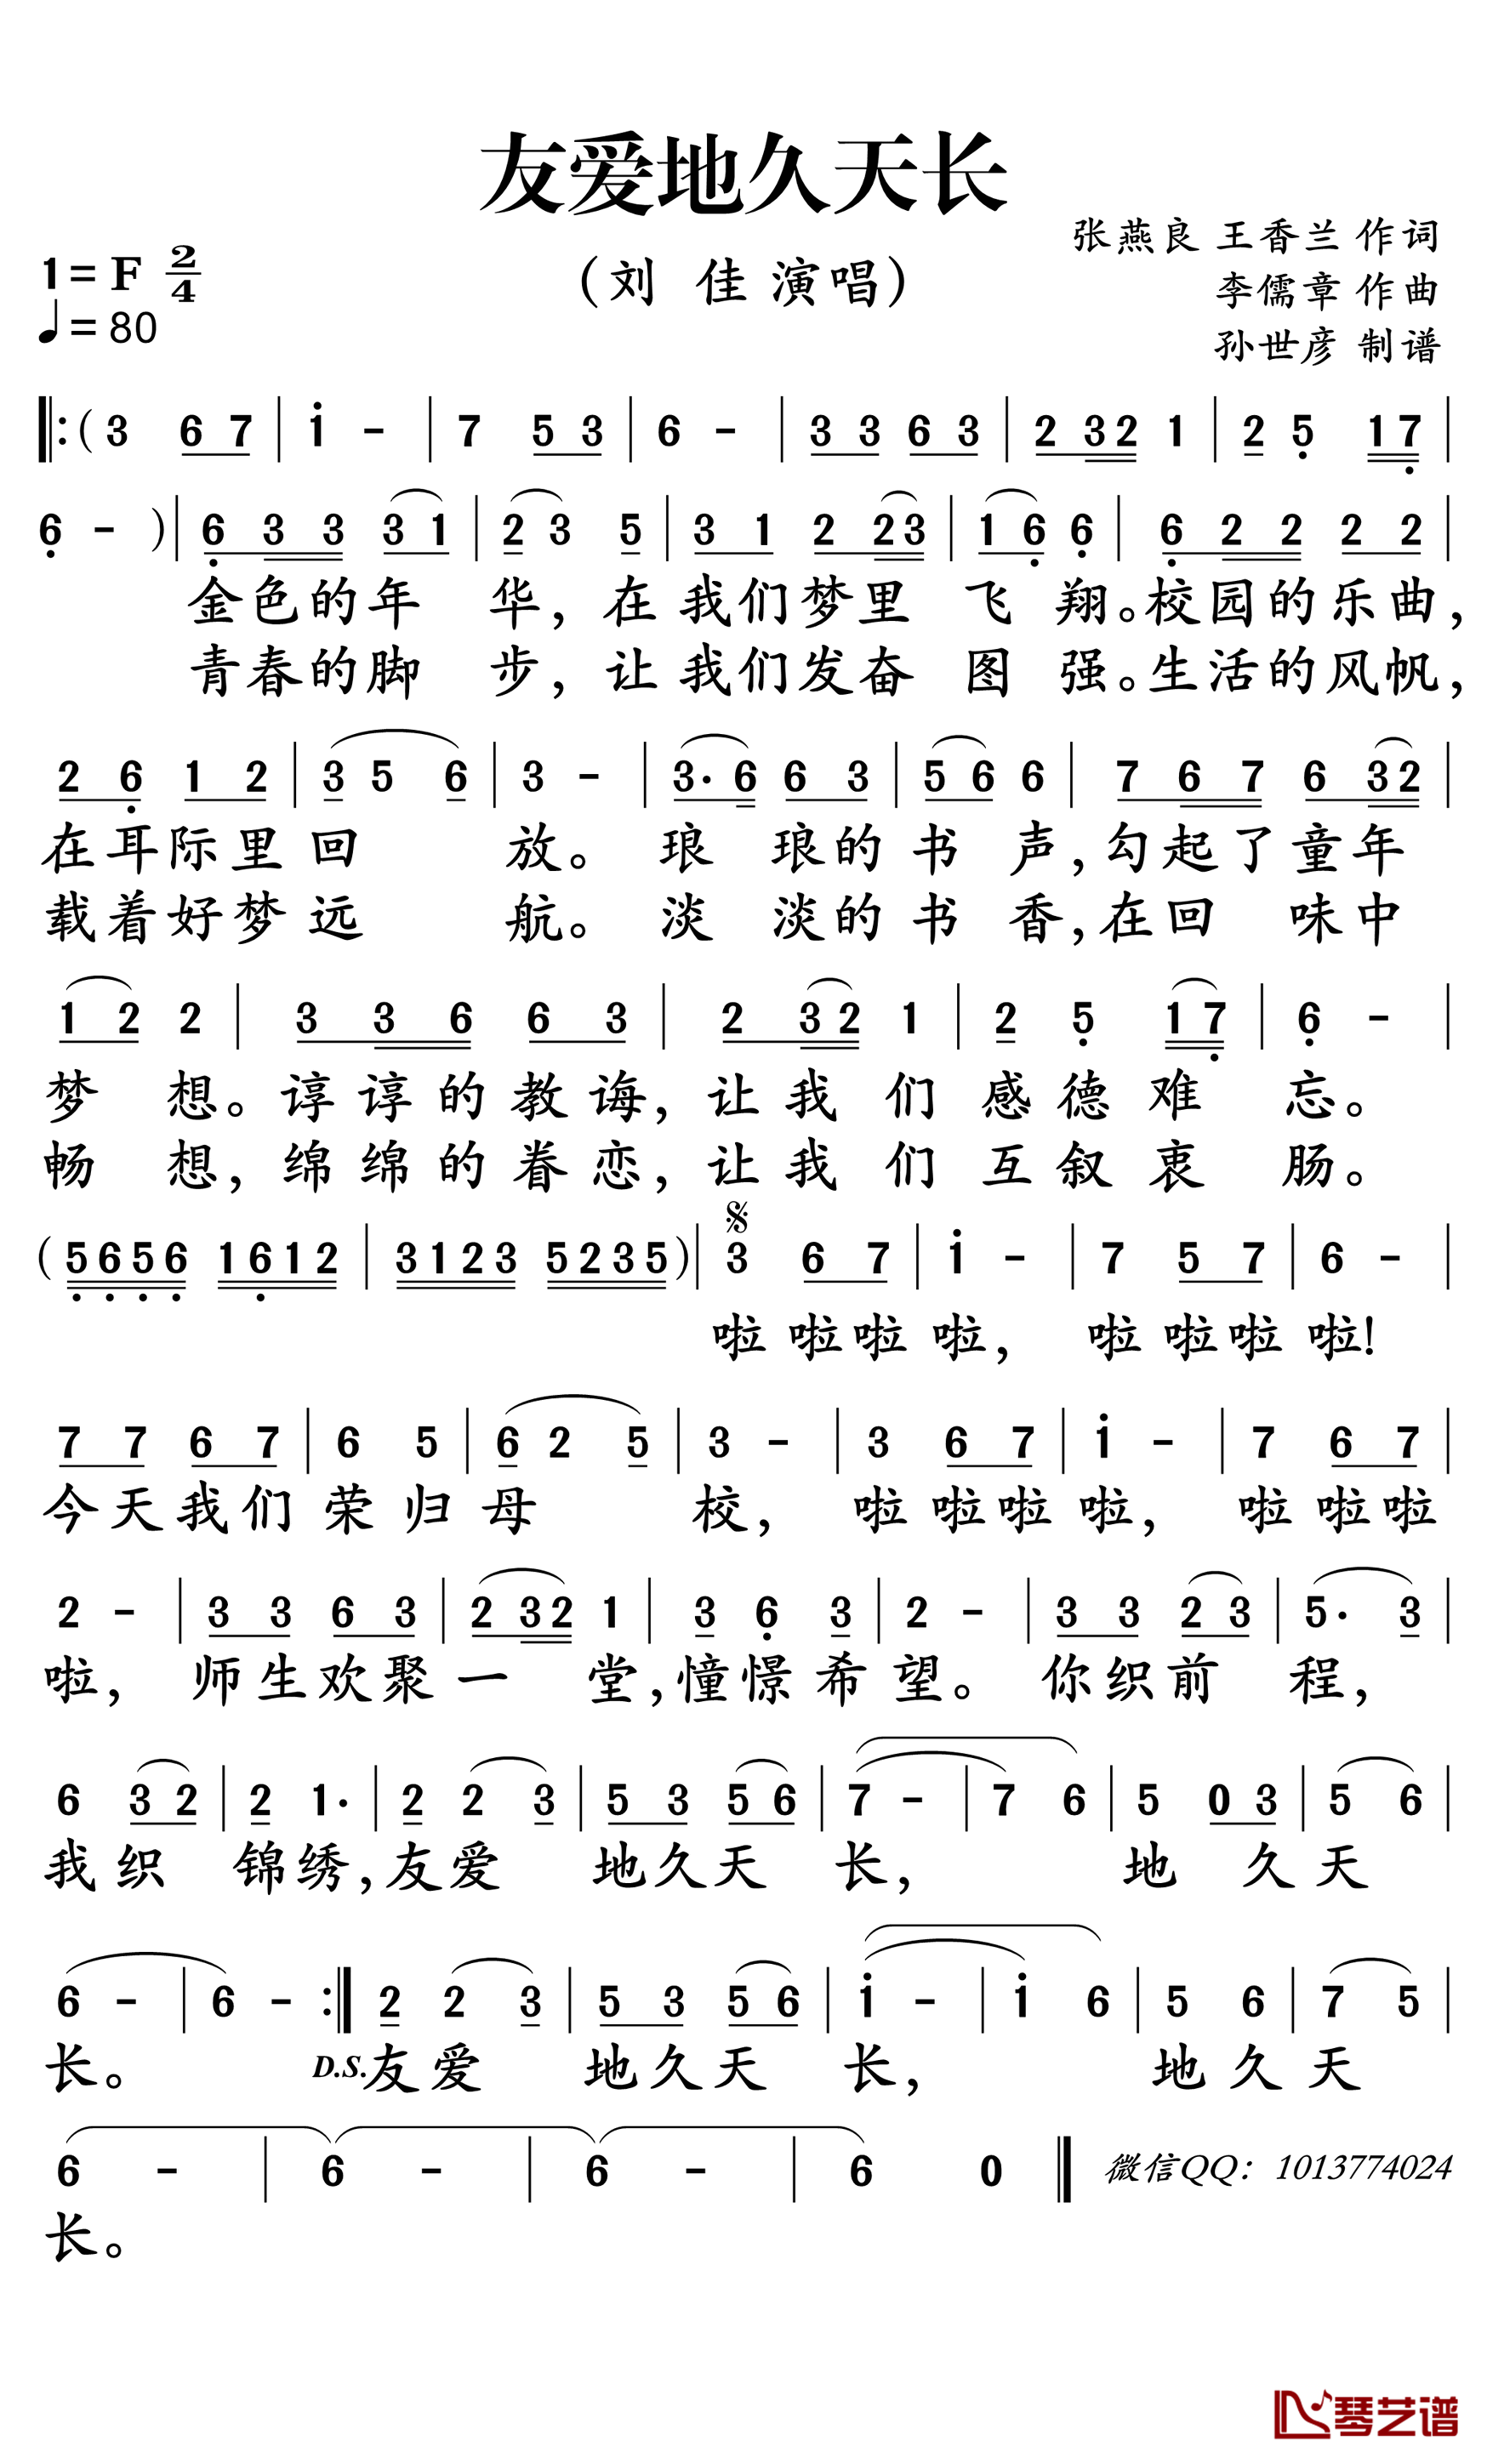 友爱地久天长
张燕良 王香兰 作词
1=F 2/4
（刘 佳 演唱）
李儒章 作曲
♩=80
孙世彦 制谱
‖: ( 3 6 7 | i - | 7 5 3 | 6 - | 3 3 6 3 | 2 3 2 1 | 2 5 1 7 |
6 - ) | 6 3 3 3 1 | 2 3 5 | 3 1 2 2 3 | 1 6 6 | 6 2 2 2 2 |
金色的年 华，在 我们梦里 飞 翔。校园的乐曲，
青春的脚 步，让 我们发奋 图 强。生活的风帆，
2 6 1 2 | 3 5 6 | 3 - | 3· 6 6 3 | 5 6 6 | 7 6 7 6 3 2 |
在耳际里回 放。 琅 琅的 书 声，勾起了童年
载着好梦远 航。 淡 淡的 书 香，在回 味中
1 2 2 | 3 3 6 6 3 | 2 3 2 1 | 2 5 1 7 | 6 - |
梦 想。谆谆的教诲，让我 们 感德难 忘。
畅 想，绵绵的眷恋，让我 们 互叙衷 肠。
𝄋
( 5 6 5 6 1 6 1 2 | 3 1 2 3 5 2 3 5 ) | 3 6 7 | i - | 7 5 7 | 6 - |
啦 啦啦 啦， 啦 啦啦 啦！
7 7 6 7 | 6 5 | 6 2 5 | 3 - | 3 6 7 | i - | 7 6 7 |
今天我们荣归母 校， 啦 啦啦 啦， 啦 啦啦
2 - | 3 3 6 3 | 2 3 2 1 | 3 6 3 | 2 - | 3 3 2 3 | 5· 3 |
啦， 师生欢聚一 堂，憧憬希 望。 你织前 程，
6 3 2 | 2 1· | 2 2 3 | 5 3 5 6 | 7 - | 7 6 | 5 0 3 | 5 6 |
我织 锦绣，友爱 地久天 长， 地 久天
6 - | 6 - :‖ 2 2 3 | 5 3 5 6 | i - | i 6 | 5 6 | 7 5 |
长。 D.S. 友爱 地久天 长， 地久天
6 - | 6 - | 6 - | 6 0 ‖ 微信QQ：1013774024
长。
琴艺谱